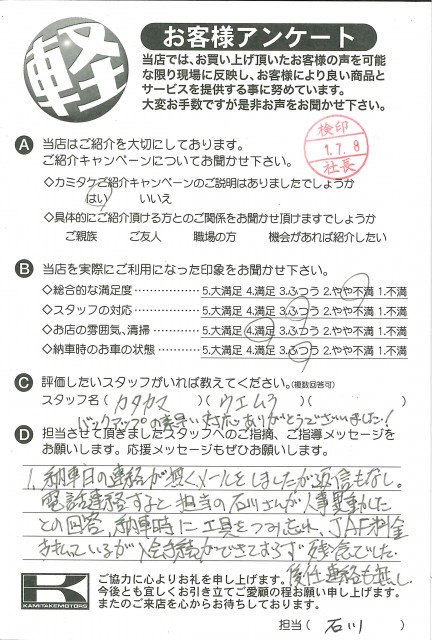 軽
お客様アンケート
当店では、お買い上げ頂いたお客様の声を可能
な限り現場に反映し、お客様により良い商品と
サービスを提供する事に努めています。
大変お手数ですが是非お声をお聞かせ下さい。
検印
1.7.8
社長
A 当店はご紹介を大切にしております。
ご紹介キャンペーンについてお聞かせ下さい。
◇カミタケご紹介キャンペーンのご説明はありましたでしょうか
はい いいえ
◇具体的にご紹介頂ける方とのご関係をお聞かせ頂けますでしょうか
ご親族 ご友人 職場の方 機会があれば紹介したい
B 当店を実際にご利用になった印象をお聞かせ下さい。
◇総合的な満足度 ‥‥‥‥‥‥ 5.大満足 4.満足 3.ふつう 2.やや不満 1.不満
◇スタッフの対応 ‥‥‥‥‥‥ 5.大満足 4.満足 3.ふつう 2.やや不満 1.不満
◇お店の雰囲気、清掃 ‥‥‥‥ 5.大満足 4.満足 3.ふつう 2.やや不満 1.不満
◇納車時のお車の状態 ‥‥‥‥ 5.大満足 4.満足 3.ふつう 2.やや不満 1.不満
C 評価したいスタッフがいれば教えてください。(複数回答可)
スタッフ名( カタカマ )( ウエムラ )
バックアップの素早い対応ありがとうございました!
D 担当させて頂きましたスタッフへのご指摘、ご指導メッセージを
お願いします。応援メッセージもぜひお願いします。
1. 納車日の連絡が無くメールをしましたが返信もなし。
電話連絡すると担当の石川さんが人事異動した
との回答、納車時に工具をつみ忘れ、JAF料金
を払っているが入会手続ができておらず残念でした。
後任連絡も無し。
K
KAMITAKEMOTORS
ご協力に心よりお礼を申し上げます。
今後とも宜しくお引き立てご愛顧の程お願い申し上げます。
またのご来店を心からお待ちしております。
担当( 石川 )